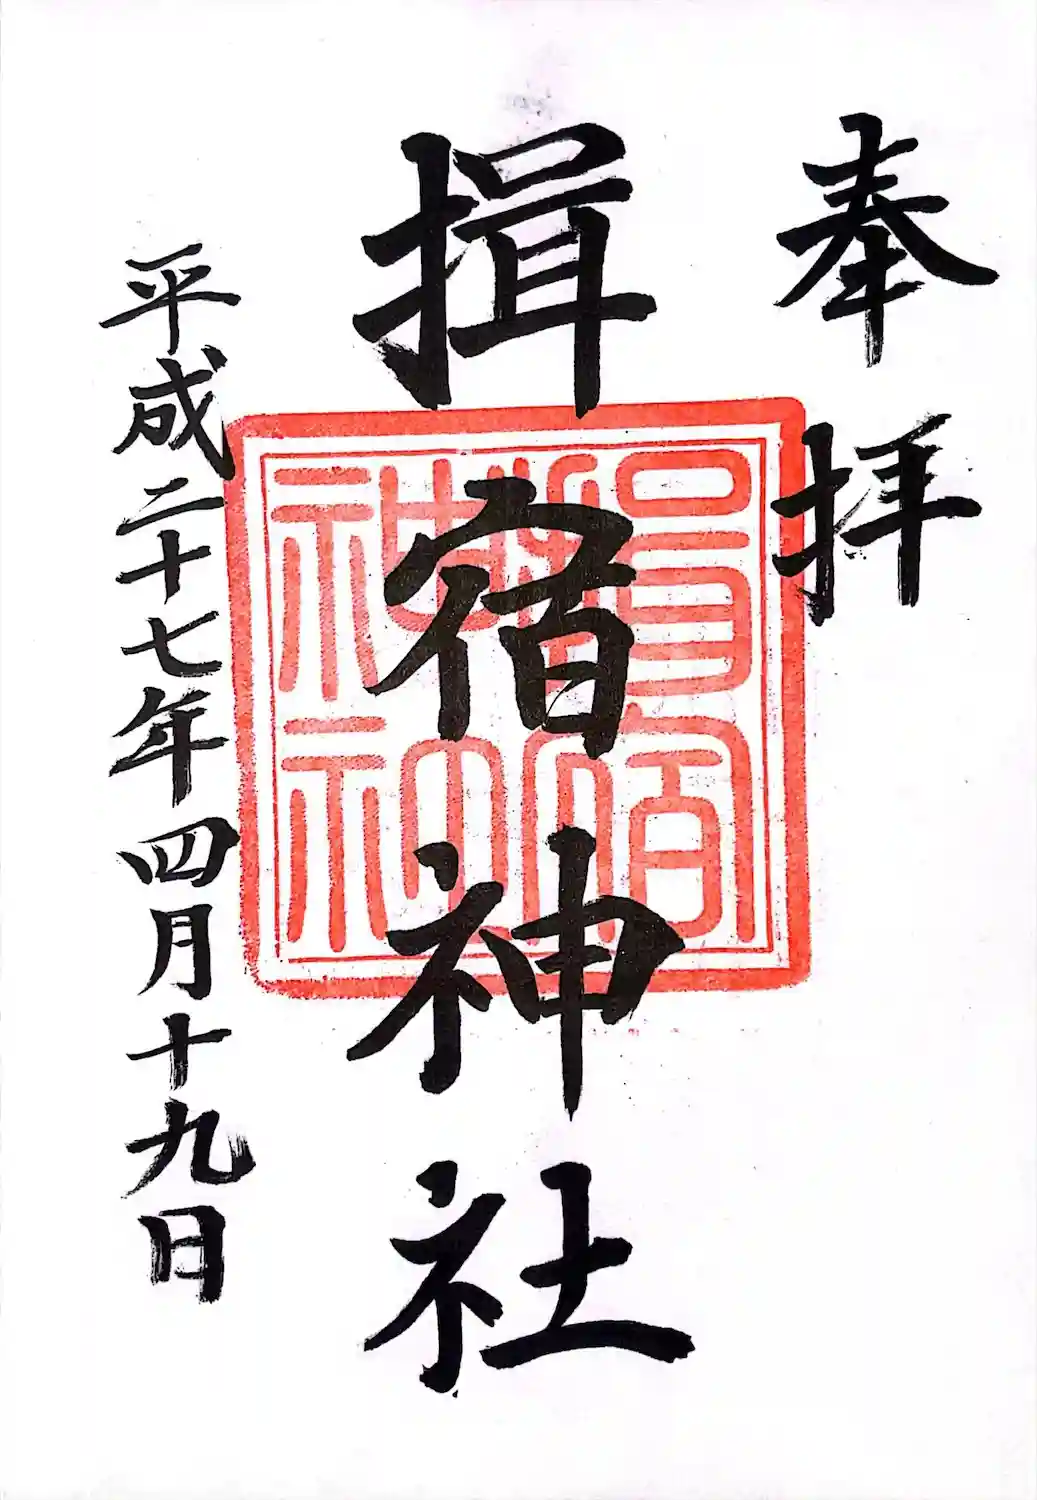 奉拝
揖宿神社
平成二十七年四月十九日
揖宿
神社